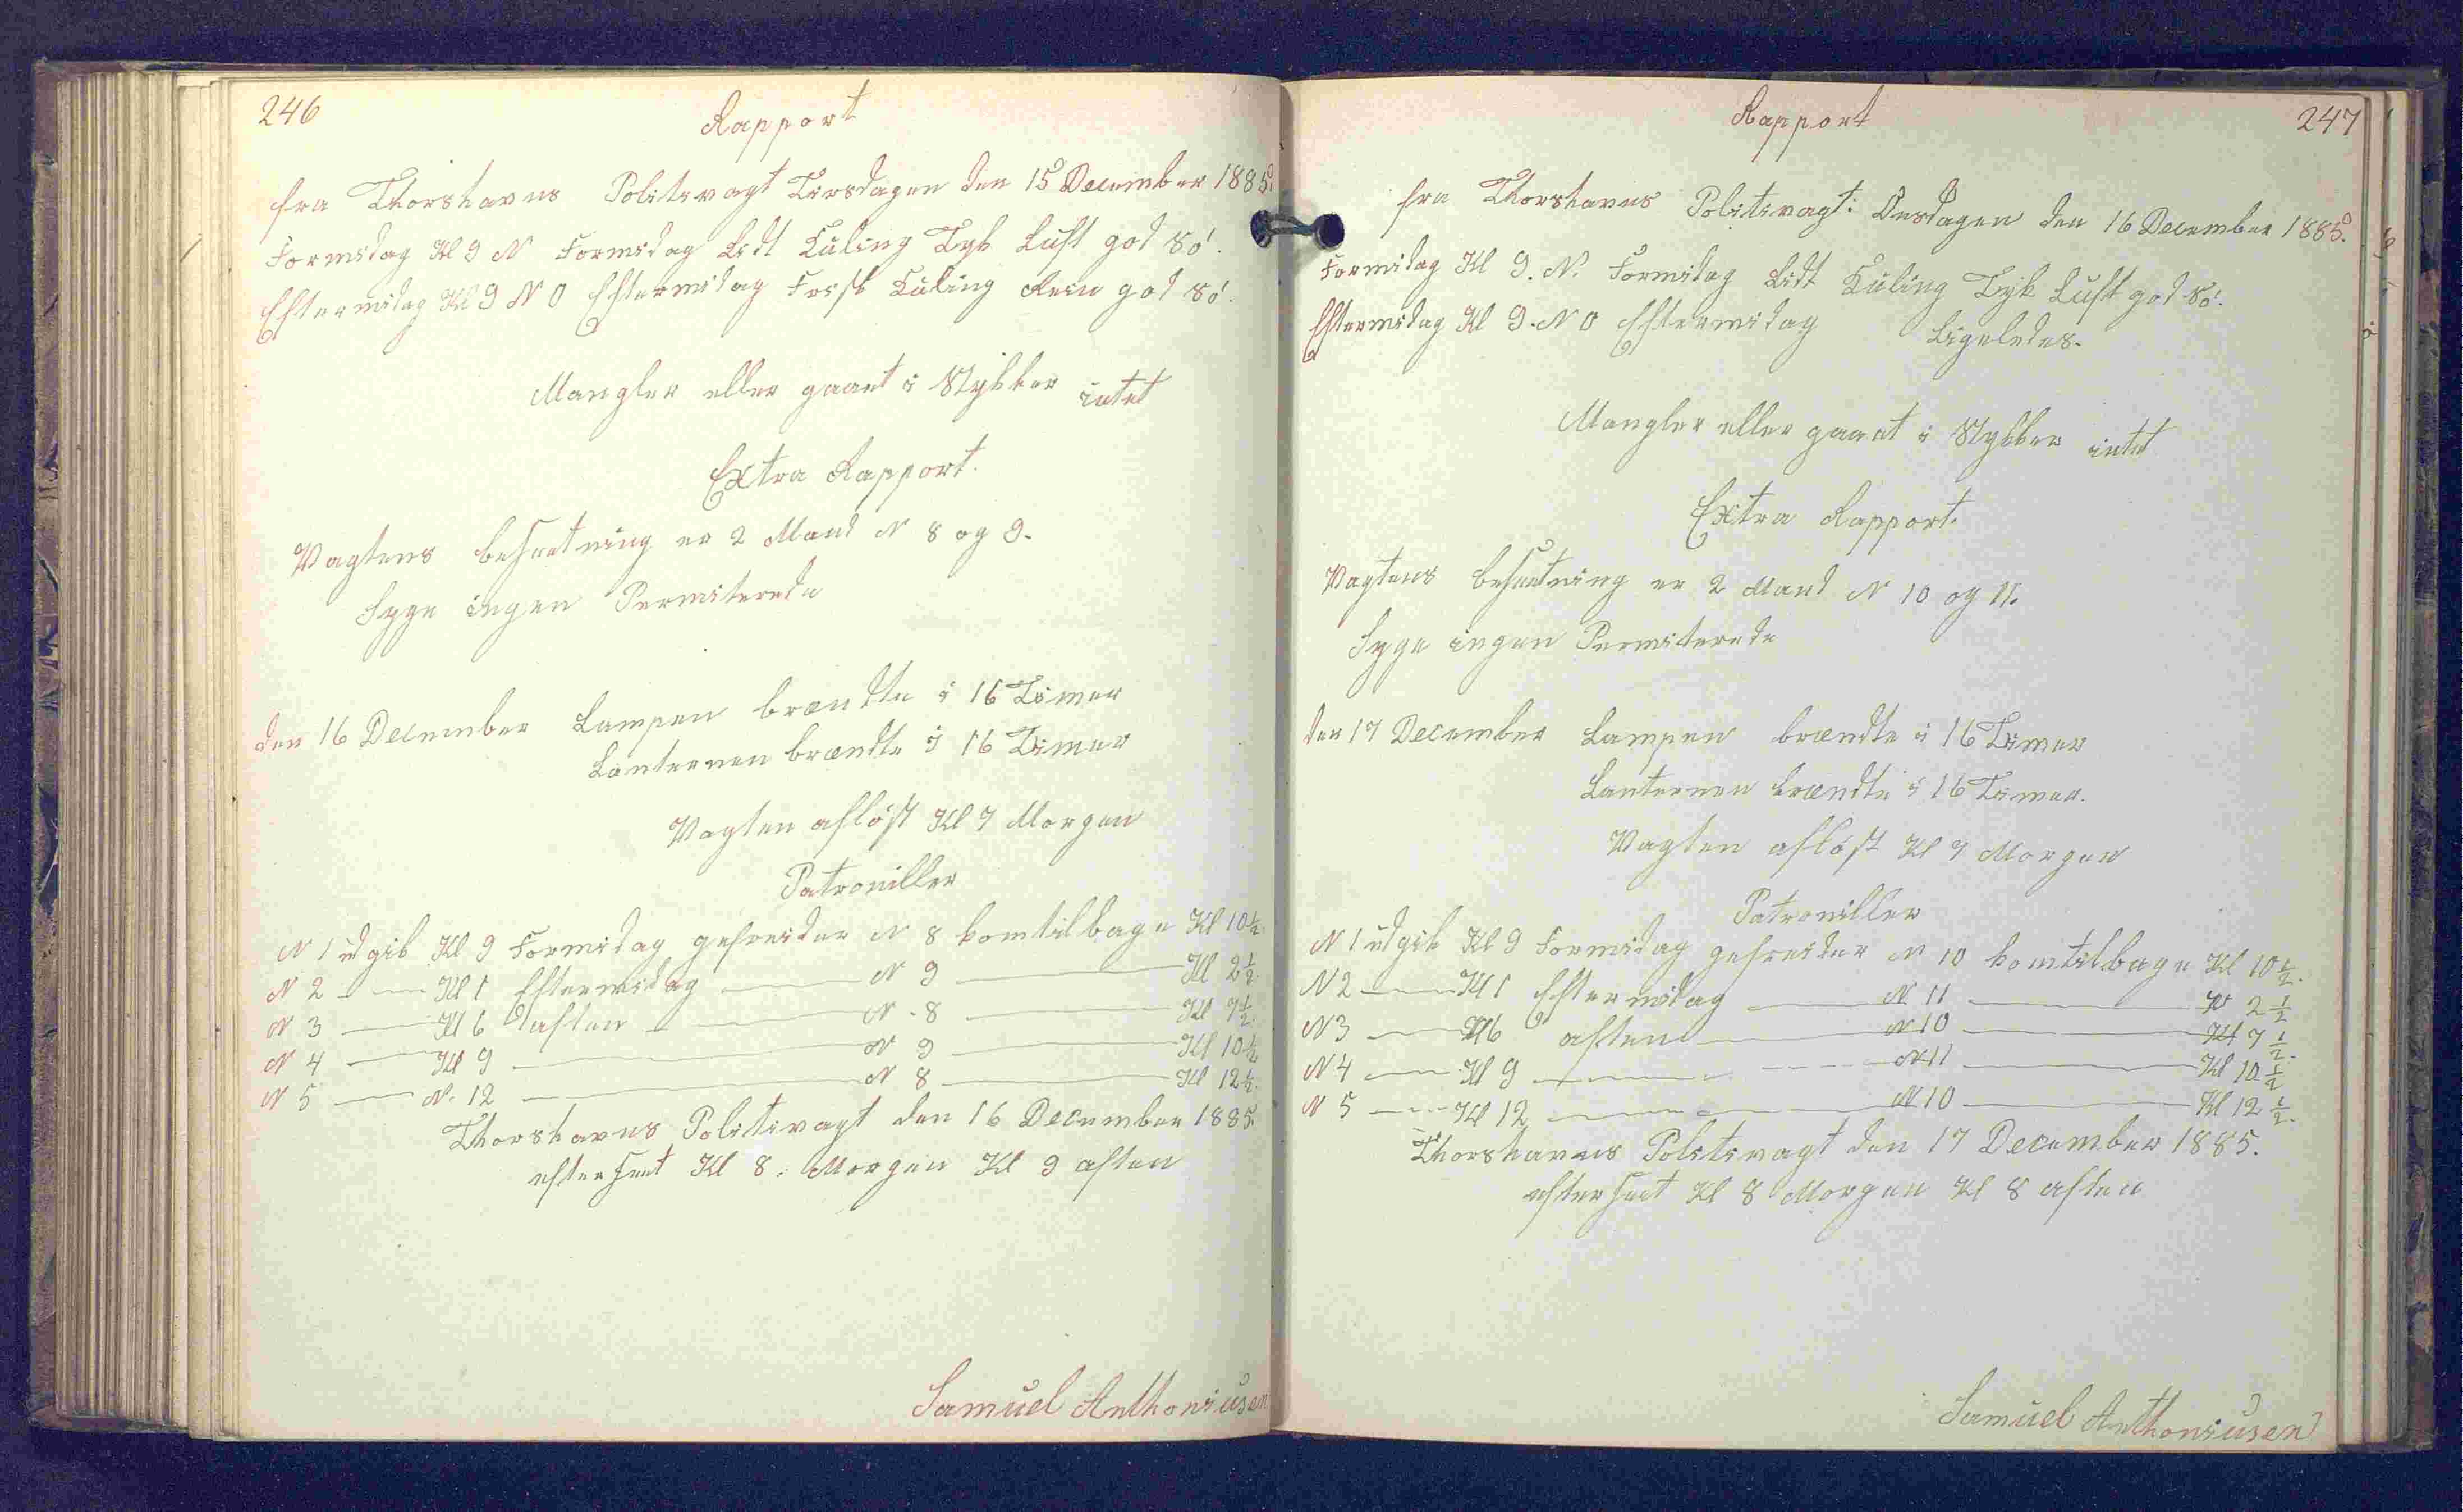 246
Rapport
fra Thorshavns Politivagt Tirsdagen den 15 December 1885.
Formidag Kl 9 N Formidag Lidt Kuling Tyk Luft god Sö.
Eftermidag Kl 9 N O Eftermidag Frisk Kuling Rein god Sö.
Mangler eller gaaet i Stykker intet
Extra Rapport.
Vagtens besætning er 2 Mand N 8 og 9.
Syge ingen Permiterede
den 16 December Lampen brændte i 16 Timer
Lanternen brændte i 16 Timer
Vagten aflöst Kl 7 Morgen
Patrouiller
N 1 udgik Kl 9 Formidag gefreider N 8 komtilbage Kl 10½.
N 2 — Kl 1 Eftermidag — N 9 — Kl 2½.
N 3 — Kl 6 aften — N. 8 — Kl 7½.
N 4 — Kl 9 — N 9 — Kl 10½
N 5 — N. 12 — N 8 — Kl 12½.
Thorshavns Politivagt den 16 December 1885.
efterseet Kl 8. Morgen Kl 9 aften
Samuel Anthoniusen
247
Rapport
fra Thorshavns Politivagt: Onsdagen den 16 December 1885.
Formidag Kl 9. N. Formidag Lidt Kuling Tyk Luft god Sö.
Eftermidag Kl 9. N O Eftermidag Ligeledes.
Mangler eller gaaet i Stykker intet
Extra Rapport.
Vagtens besætning er 2 Mand N 10 og 11.
Syge ingen Permiterede
den 17 December Lampen brændte i 16 Timer
Lanternen brændte i 16 Timer.
Vagten aflöst Kl 7 Morgen
Patrouiller
N 1 udgik Kl 9 Formidag gefreider N 10 komtilbage Kl 10½.
N 2 — Kl 1 Eftermidag — N 11 — Kl 2½
N 3 — Kl 6 aften — N 10 — Kl 7½.
N 4 — Kl 9 — N 11 — Kl 10½
N 5 — Kl 12 — N 10 — Kl 12½.
Thorshavns Politivagt den 17 December 1885.
efterseet Kl 8 Morgen Kl 8 aften
Samuel Anthoniusen